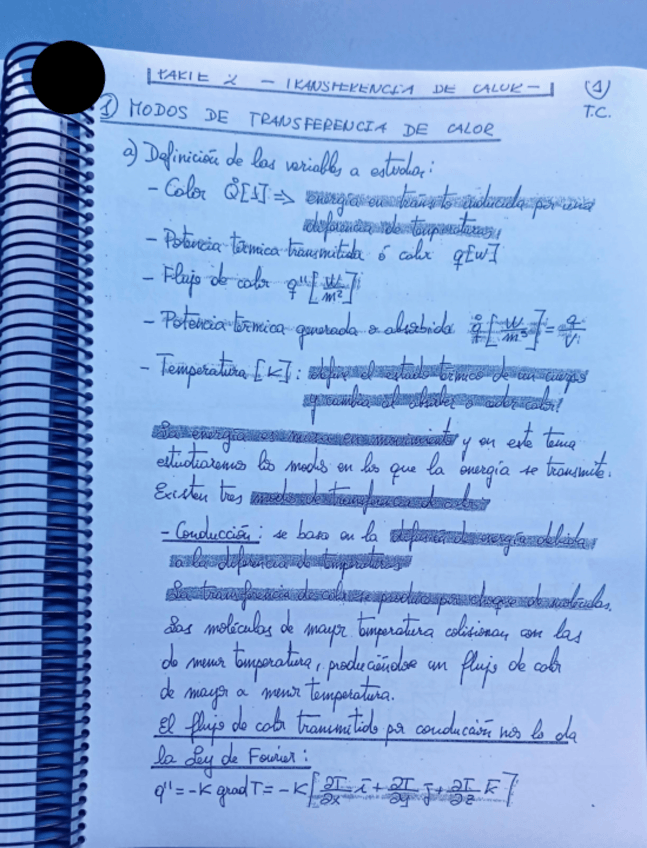 PARTE 2 - TRANSFERENCIA DE CALOR - 1
T.C.
1) MODOS DE TRANSFERENCIA DE CALOR
a) Definición de las variables a estudiar:
- Calor Q[J] => energía en tránsito inducida por una
diferencia de temperaturas.
- Potencia térmica transmitida ó calor q[W]
- Flujo de calor q''[W/m²]
- Potencia térmica generada o absorbida q̇[W/m³] = q/V
- Temperatura [K]: define el estado térmico de un cuerpo
y cambia al absorber o ceder calor.
La energía es materia en movimiento y en este tema
estudiaremos los modos en los que la energía se transmite.
Existen tres modos de transferencia de calor
- Conducción: se basa en la de energía debida
a la diferencia de temperaturas
La transferencia de calor se produce por choque de moléculas.
Las moléculas de mayor temperatura colisionan con las
de menor temperatura, produciéndose un flujo de calor
de mayor a menor temperatura.
El flujo de calor transmitido por conducción nos lo da
la Ley de Fourier:
q'' = -K grad T = -K [∂T/∂x i + ∂T/∂y j + ∂T/∂z k]